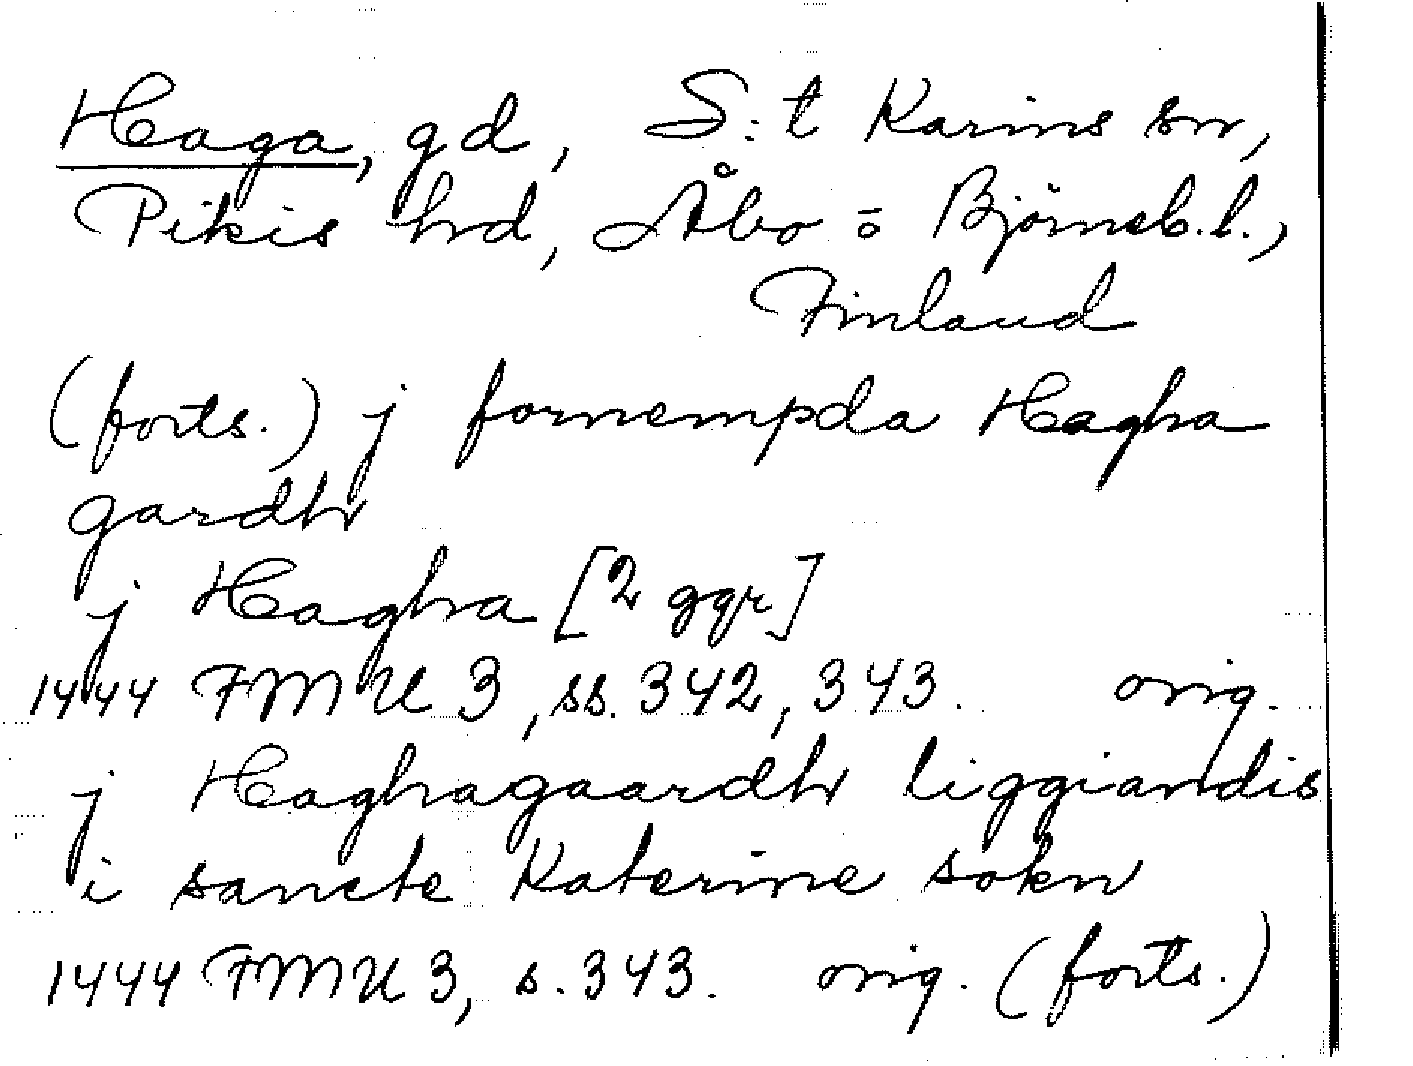 Haga, gd, S:t Karins sn,
Pikis hrd, Åbo o Björneb. l.,
Finland
(forts.) j fornempda Hagha
gardh
j Hagha [2 ggr]
1444 FMU 3, ss. 342, 343. orig.
j Haghagaardh liggiandis
i sancte Katerine sokn
1444 FMU 3, s. 343. orig. (forts.)